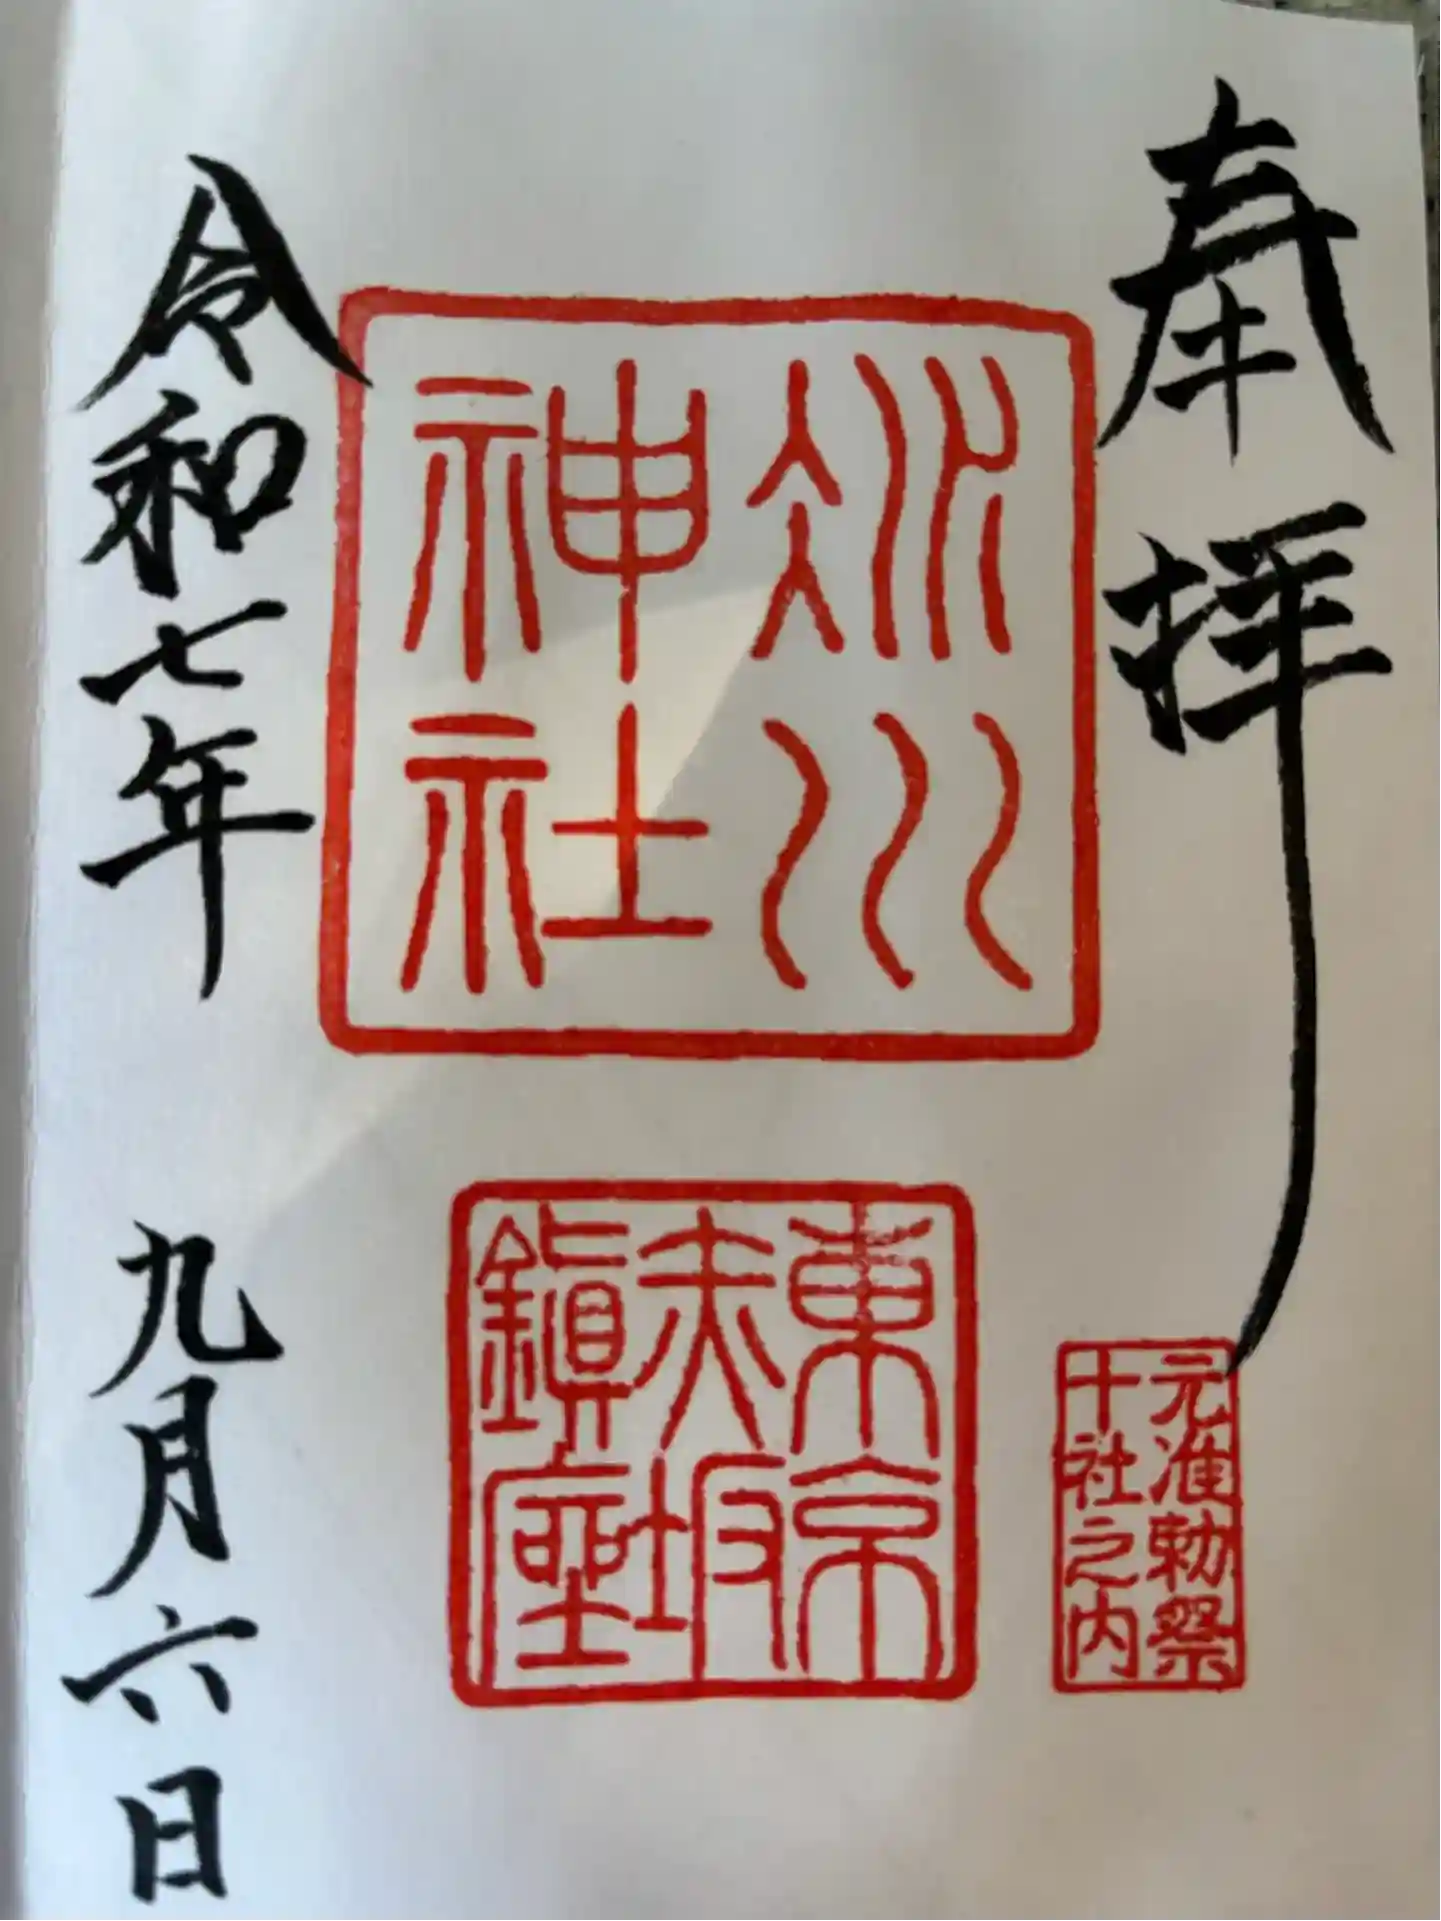 奉拝
元准勅祭
十社之内
氷川
神社
東京
赤坂
鎮座
令和七年
九月六日